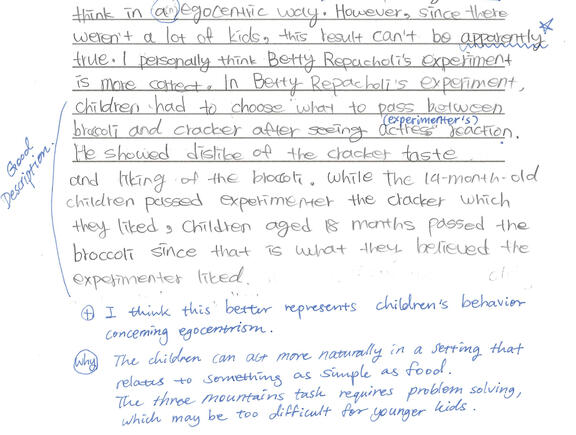 think in (an) egocentric way. However, since there
weren't a lot of kids, this result can't be apparently
true. I personally think Betty Repacholi's experiment
is more correct. In Betty Repacholi's experiment,
children had to choose what to pass between
(experimenter's)
broccoli and cracker after seeing actress' reaction.
Good
Description.
He showed dislike of the cracker taste
and liking of the broccoli. While the 14-month-old
children passed experimenter the cracker which
they liked, children aged 18 months passed the
broccoli since that is what they believed the
experimenter liked.
+ I think this better represents children's behavior
concerning egocentrism.
why The children can act more naturally in a setting that
relates to something as simple as food.
The three mountains task requires problem solving,
which may be too difficult for younger kids.